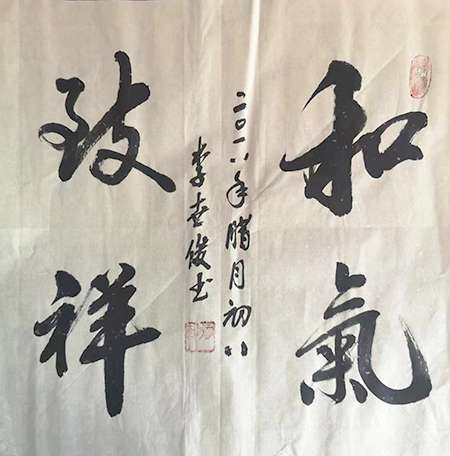 和氣
致祥
二〇一八年腊月初八
李世俊书